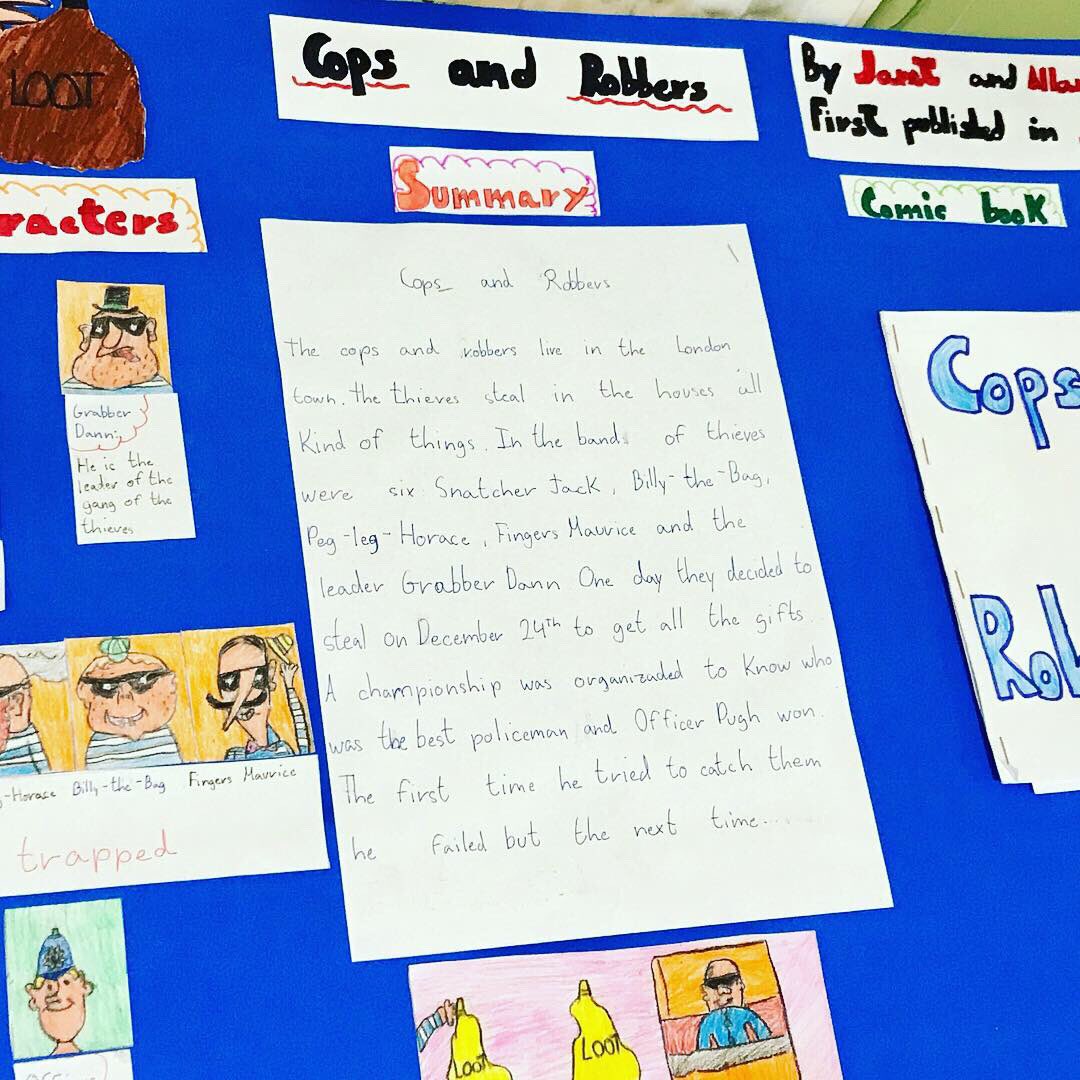 LOOT
Cops and Robbers
By Janet and Allan
First published in
racters
Summary
Comic book
Grabber
Dann:
He is the
leader of the
gang of the
thieves
Cops and Robbers
The cops and robbers live in the London
town. The thieves steal in the houses all
Kind of things. In the band of thieves
were six Snatcher Jack, Billy-the-Bag,
Peg-leg-Horace, Fingers Maurice and the
leader Grabber Dann One day they decided to
steal on December 24th to get all the gifts.
A championship was organizaded to Know who
was the best policeman and Officer Pugh won.
The first time he tried to catch them
he failed but the next time.....
Cops
Rob
g-Horace Billy-the-Bag Fingers Maurice
trapped
LOOT LOOT